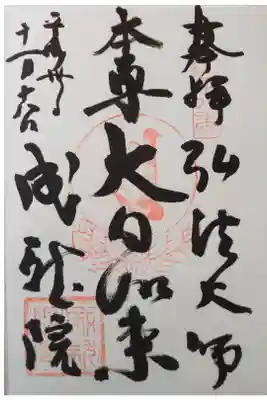 奉拝 弘法大師
本尊 大日如来
成龍院
平成卅年
十一月十六日